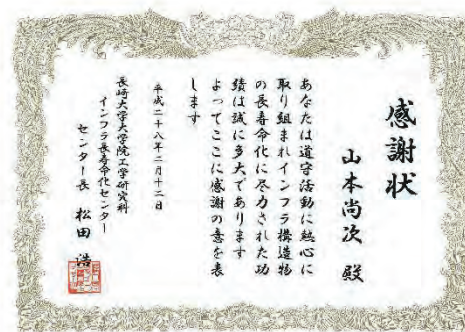 感謝状
山本尚次 殿
あなたは道守活動に熱心に
取り組まれインフラ構造物
の長寿命化に尽力された功
績は誠に多大であります
よってここに感謝の意を表
します
平成二十八年二月十二日
長崎大学大学院工学研究科
インフラ長寿命化センター
センター長 松田 浩